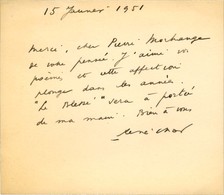 15 Janvier 1951
Merci, cher Pierre Morhange
de votre pensée. J'aime vos
poèmes, et cette affection
plonge dans les années.
"Le Blessé" sera à portée
de ma main. Bien à vous
René Char